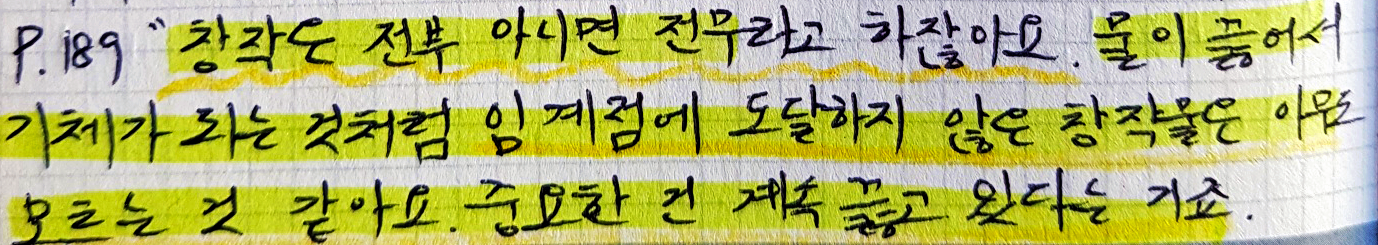 P.189 "창작은 전부 아니면 전무라고 하잖아요. 물이 끓어서
기체가 되는 것처럼 임계점에 도달하지 않은 창작물은 아무도
모르는 것 같아요. 중요한 건 계속 끓고 있다는 거죠.